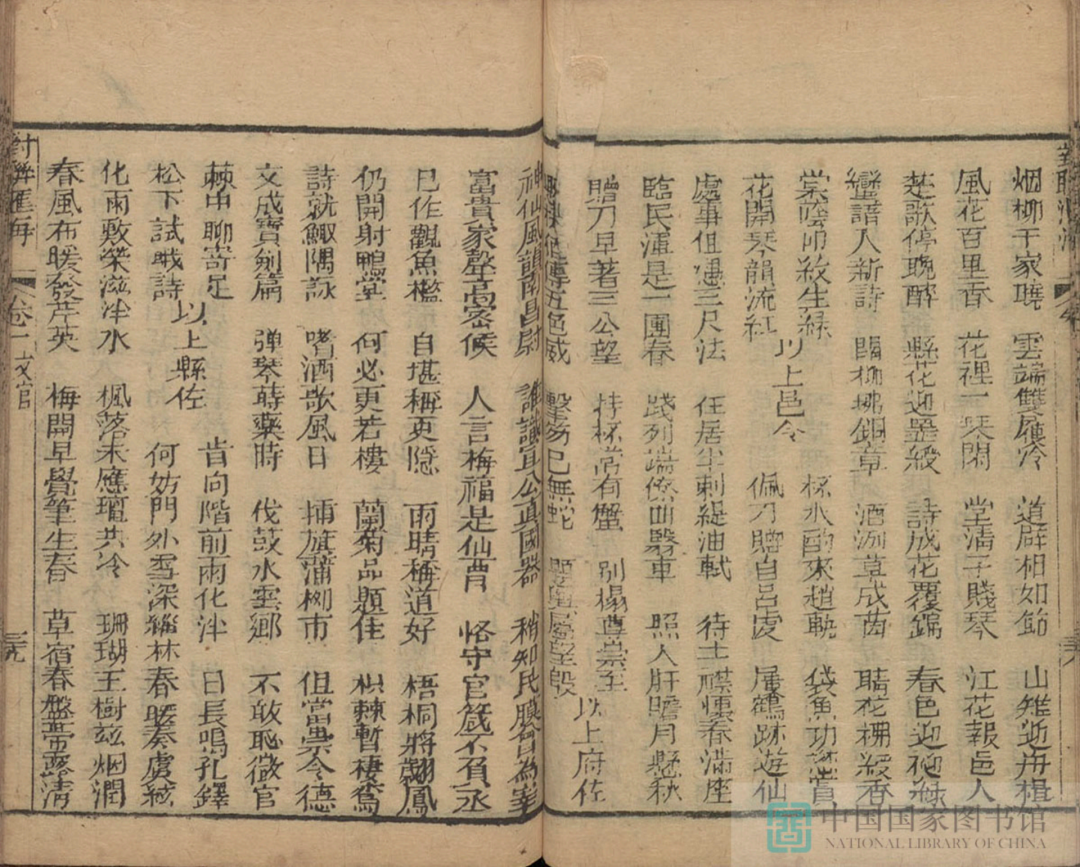 烟柳千家曉　雲端雙屨冷　道辟相如節　山雉迎舟楫
風花百里香　花裡一琴閑　堂清子賤琴　江花報邑人
楚歌停晚醉　縣花迎墨綬　詩成花覆錦　春色迎袍綠
蠻語人新詩　關柳拂銅章　酒洌草成茵　晴花棚綬香
棠陰印綬生綠　杯水酌來趙軌　袋魚功
花開琴韻流紅　以上邑令　佩刀贈自呂虔　屬鶴跡遊仙
處事但懸三尺法　任居半刺緹油軾　待士襟懷春滿座
臨民渾是一團春　踐列端僚皿翳車　照人肝膽月懸秋
贈刀早著三公望　持杯常有蟹　別榻尊崇　以上府佐
五色威　擊笏已無蛇
神仙風　南昌尉　宜公真國器　稍知民
富貴家聲高密侯　人言梅福是仙曹　恪守官箴不負丞
已作觀魚檻　自堪稱吏隱　雨晴稱道好　梧桐將翽鳳
仍開射鴨堂　何必更若樓　蘭菊品題佳　枳棘暫棲鸞
詩就鯫隅詠　嗜酒歌風日　插旗蒲柳市　但當崇令德
文成寶劍篇　弹琴蒔藥時　伐鼓水雲鄉　不敢恥微官
棘中聊寄足　肯向階前雨化泮　日長鳴孔鐸
松下試哦詩　以上縣佐　何妨門外雪深緇林春暖奏虞絃
化雨敷榮滋泮水　楓落未應壇共冷　珊瑚玉樹玆烟潤
春風布暖發芹英　梅開早覺筆生春　草宿春盤帶露清
對聯匯海　卷一文官　三九
中国国家图书馆
NATIONAL LIBRARY OF CHINA